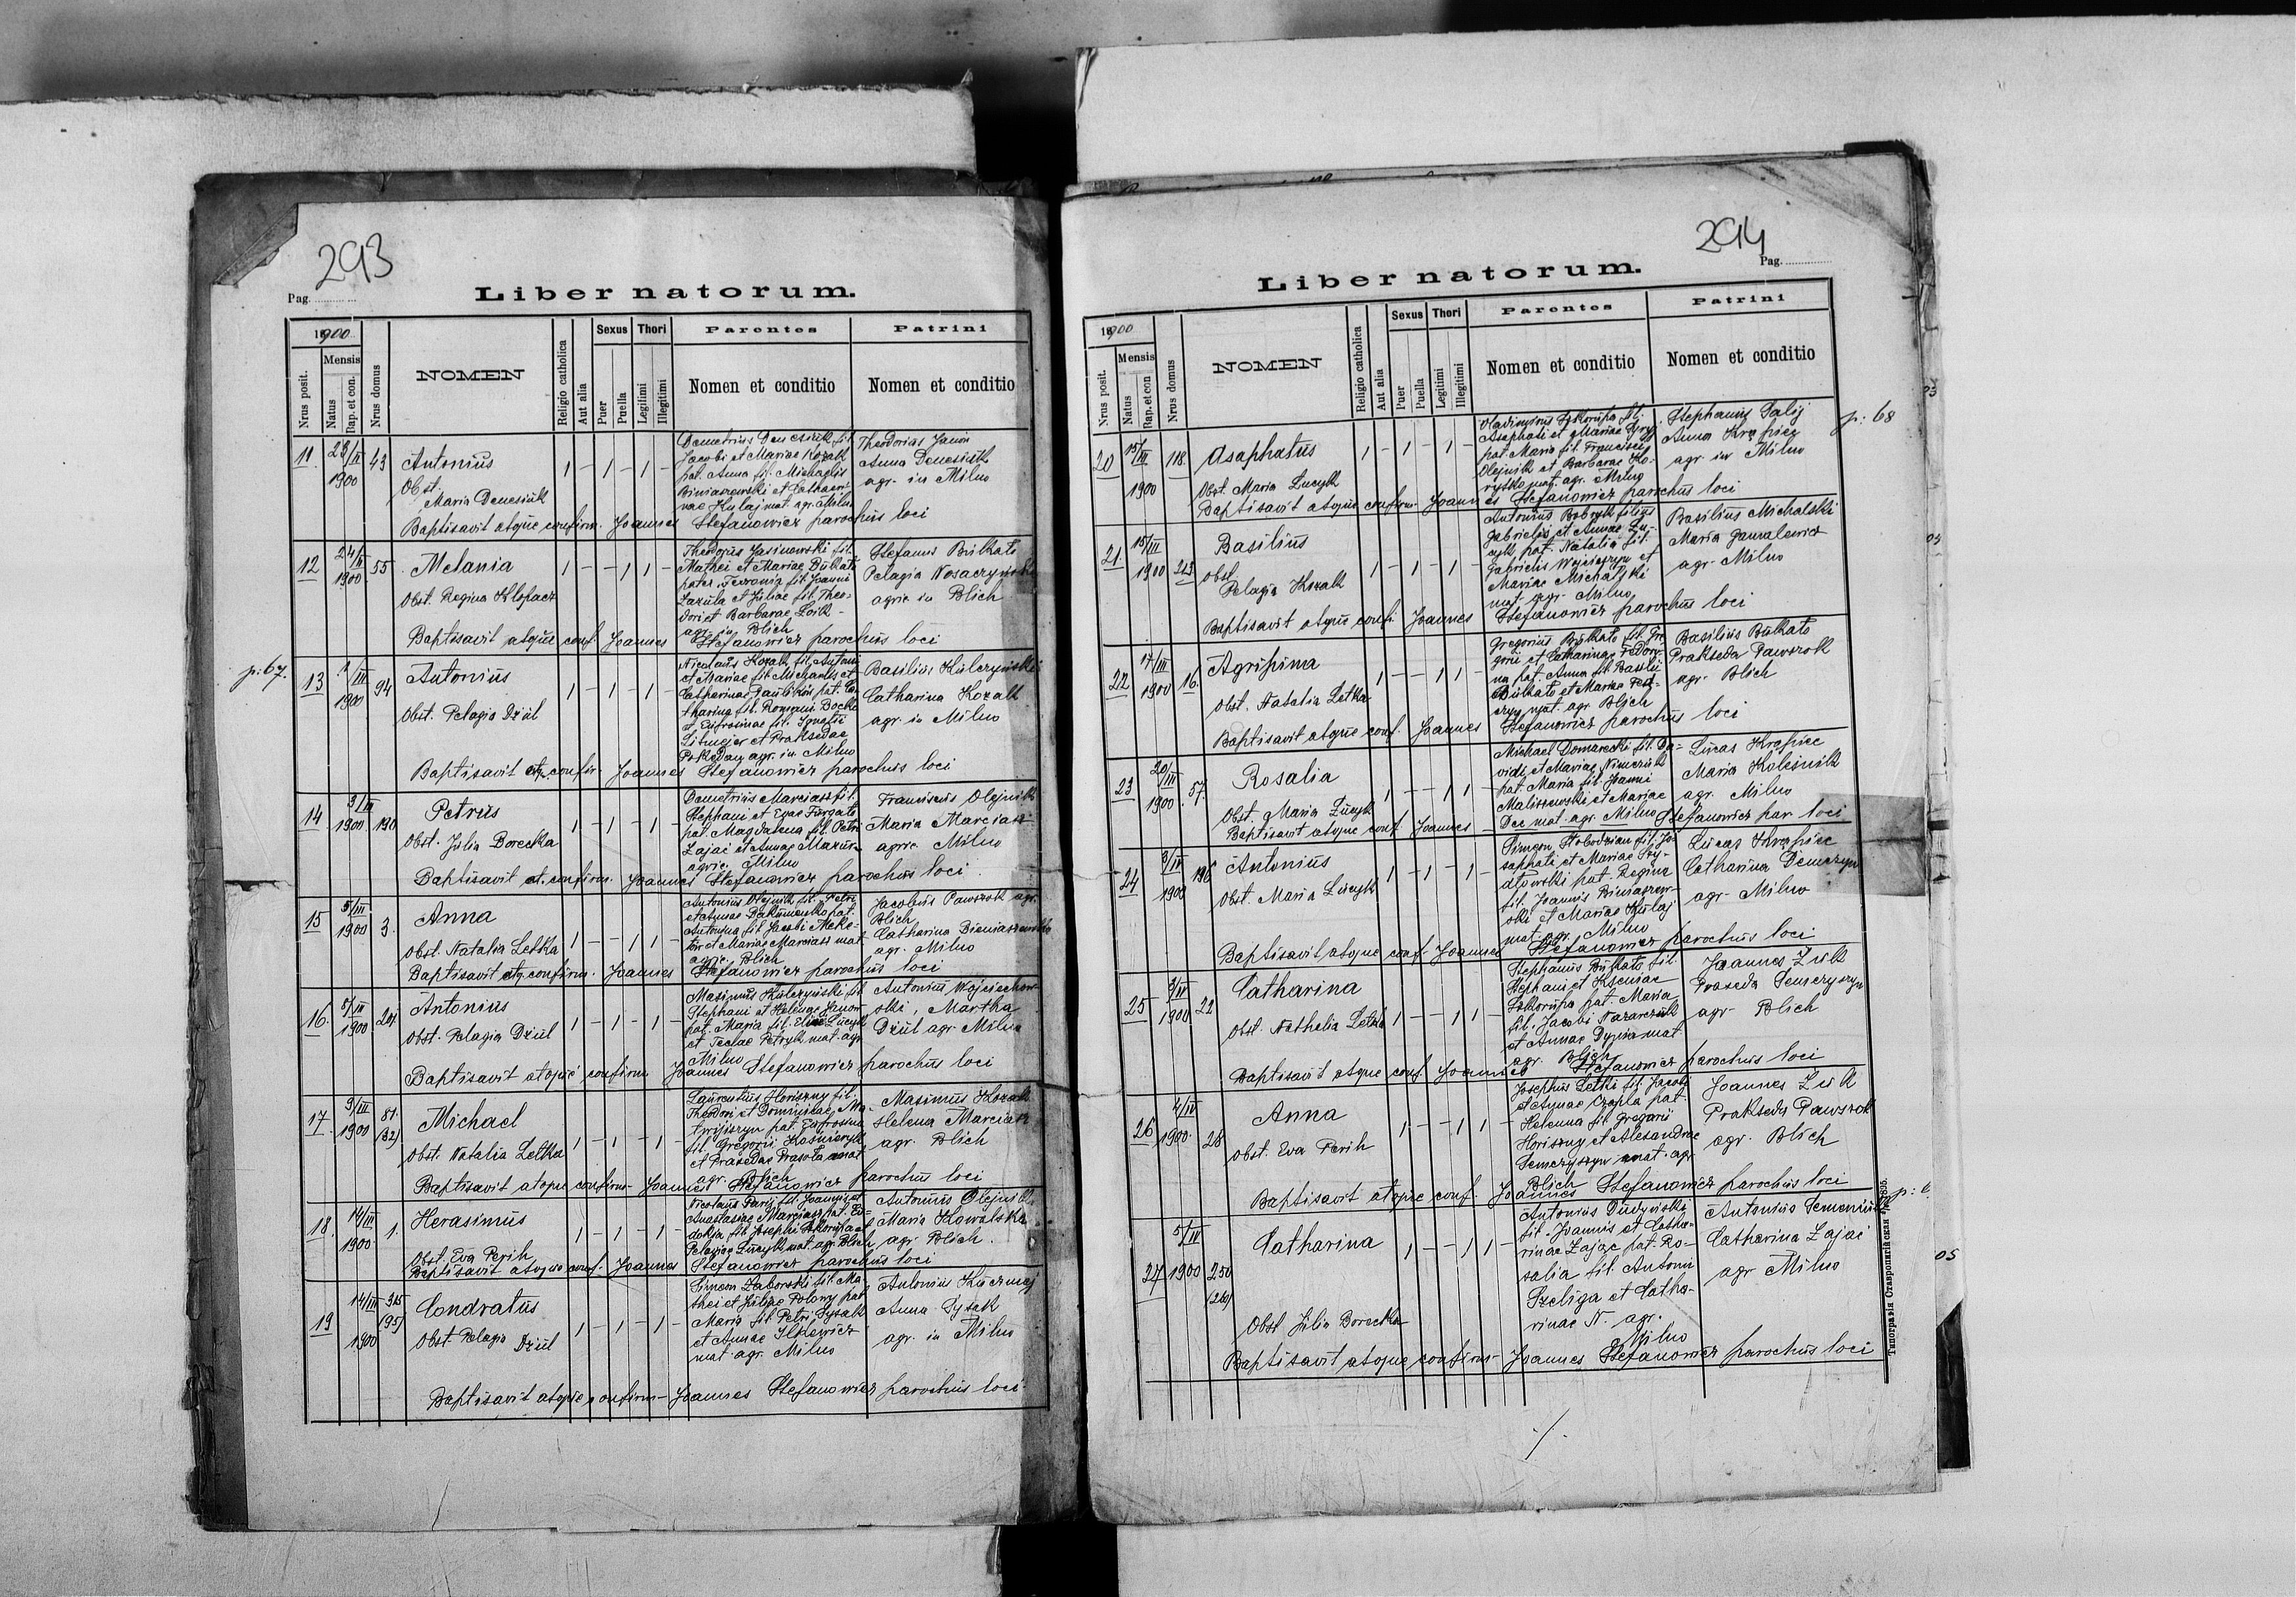 293
Pag.
Liber natorum.
1900
Nrus posit.
Mensis
Natus
Bap. et con.
Nrus domus
NOMEN
Religio catholica
Aut alia
Sexus
Puer
Puella
Thori
Legitimi
Illegitimi
Parentes
Nomen et conditio
Patrini
Nomen et conditio
11
23/II
1900
43
Antonius
Obst.
Maria Denesiuk
1 - 1 - 1 -
Demetrius Denesiuk fil.
Jacobi et Mariae Kozak
pat. Anna fil. Michaelis
Biniaszewski et Cathari-
nae Kulaj mat. agr. Milno
Theodorus
Anna Denesiuk
agr. in Milno
Baptisavit atque confirm. Joannes Stefanowicz parochus loci
12
24/II
1900
55
Melania
Obst. Regina Klopacz
1 - - 1 1 -
Theodorus Jasinowski fil.
Mathei et Mariae Bulkato
pater. fil. Joanni
Zazula et Juliae fil. Theo-
dori et Barbarae
agr. in Blich
Stefanus Bulkato
Pelagia
agric. in Blich
Baptisavit atque conf. Joannes Stefanowicz parochus loci
p. 67.
13
1/III
1900
94
Antonius
Obst. Pelagia Dziul
1 - 1 - 1 -
Nicolaus Kozak fil. Antoni
et Mariae fil. Michaelis et
Catharinae pat. Ca-
tharina fil. Romani
et Eufrosinae fil. Ignatii
Litwejer et Praksedae
agr. in Milno
Basilius Kulczyński
Catharina Kozak
agr. in Milno
Baptisavit atq. confir. Joannes Stefanowicz parochus loci
14
3/III
1900
190
Petrus
Obst. Julia Borecka
1 - 1 - 1 -
Demetrius Marciasz fil.
Stephani et Evae Furgato
pat. Magdalena fil. Petri
Zajac et Annae Mazur
agric. Milno
Franciscus Olejnik
Maria Marciasz
agric. Milno
Baptisavit et. confirm. Joannes Stefanowicz parochus loci.
15
5/III
1900
3.
Anna
Obst. Natalia Letka
1 - - 1 1 -
Antonius Olejnik fil. Petri
et Annae pat.
Antonina fil. Jacobi
et Mariae Marciasz mat.
agric. Blich
Jacobus Pawszok agr.
Blich
Catharina Bieniaszewska
agr. Milno
Baptisavit atq. confirm. Joannes Stefanowicz parochus loci
16.
5/III
1900
204
Antonius
Obst. Pelagia Dziul
1 - 1 - 1 -
Maximus Kulczyński fil.
Stephani et Helenae
pat. Maria fil. Eliae Lucyk
et Teclae Petryk mat. agr.
Milno
Antonius Wojciechow-
ski, Martha
Dziul agr. Milno
Baptisavit atque confirm Joannes Stefanowicz parochus loci
17.
9/III
1900
81.
(32)
Michael
Obst. Natalia Letka
1 - 1 - 1 -
Laurentius Horiszny fil.
Theodori et Dominicae
pat. Eufrosina
fil. Gregorii
et Praxedae Prasola mat.
agr. Blich
Maximus Kozak
Helena Marciasz
agr. Blich
Baptisavit atque confirm. Joannes Stefanowicz parochus loci
18.
14/III
1900
1.
Herasimus
Obst. Eva Perih
1 - 1 - 1 -
Nicolaus Parij fil. Joannis et
Anastasiae Marciasz pat. Eu-
dokja fil. Josephi Szkorupa et
Pelagiae Lucyk mat. agr. Blich
Antonius Olejnik
Maria Kowalska
agr. Blich.
Baptisavit atque conf. Joannes Stefanowicz parochus loci
19
14/III
1900
315
(95)
Condratus
Obst. Pelagia Dziul
1 - 1 - 1 -
Simeon Zaborski fil. Ma-
thei et Juliae Polowy pat.
Maria fil. Petri Pysak
et Annae Ilkiewicz
mat. agr. Milno
Antonius Kuczmej
Anna Pysak
agr. in Milno
Baptisavit atque confirm- Joannes Stefanowicz parochus loci.
294
Pag.
Liber natorum.
1900
Nrus posit.
Mensis
Natus
Bap. et con
Nrus domus
NOMEN
Religio catholica
Aut alia
Sexus
Puer
Puella
Thori
Legitimi
Illegitimi
Parentes
Nomen et conditio
Patrini
Nomen et conditio
p: 68
20
15/III
1900
118.
Asaphatus
Obst. Maria Lucyk
1 - 1 - 1 -
Vladimirus Szkorupa fil.
Asaphati et Mariae
pat. Maria fil. Francisci
Olejnik et Barbarae
mat. agr. Milno
Stephanus Palij
Anna Krąpiec
agr. in Milno
Baptisavit atque confirm. Joannes Stefanowicz parochus loci
21.
15/III
1900
213
Basilius
Obst.
Pelagia Kozak
1 - 1 - 1 -
Antonius Bobryk filius
Gabrielis et Annae Lu-
cyk pat. Natalia fil.
Gabrielis et
Mariae Michalski
mat. agr. Milno
Basilius Michalski
Maria Gawalewicz
agr. Milno
Baptisavit atque confi. Joannes Stefanowicz parochus loci
22
17/III
1900
16.
Agripina
Obst. Natalia Letka
1 - - 1 1 -
Gregorius Bulkato fil. Gre-
gorii et Catharinae
pat. Anna fil. Basilii
Bulkato et Mariae
mat. agr. Blich
Basilius Bulkato
Prakseda Pawszok
agr. Blich
Baptisavit atque conf. Joannes Stefanowicz parochus loci
23
20/III
1900
57.
Rosalia
Obst. Maria Lucyk
1 - - 1 1 -
Michael Domarecki fil. Da-
vidi et Mariae
pat. Maria fil. Joanni
Maliszewski et Mariae
Dec mat. agr. Milno
Lucas Krąpiec
Maria Kolesnik
agr. Milno
Baptisavit atque conf Joannes Stefanowicz par. loci
24
3/IV
1900
196
Antonius
Obst. Maria Lucyk
1 - 1 - 1 -
Simeon Słobodzian fil. Jo-
saphati et Mariae Szy-
dłowski pat. Regina
fil. Joannis Biniaszew-
ski et Mariae Kulaj
mat. agr. Milno
Lucas Krąpiec
Catharina Demczyna
agr. Milno
Baptisavit atque conf. Joannes Stefanowicz parochus loci
25
3/IV
1900
22
Catharina
Obst. Nathalia Letka
1 - - 1 1 -
Stephanus Bulkato fil.
Stephani et Kseniae
Szkorupa pat. Maria
fil. Jacobi Nazarczuk
et Annae mat.
agr. Blich
Joannes Zuk
Praxeda Semczyszyn
agr. Blich
Baptisavit atque conf. Joannes Stefanowicz parochus loci
26
4/IV
1900.
28
Anna
Obst. Eva Perih
1 - - 1 1 -
Josephus Letki fil. Jacobi
et Annae Czapla pat.
Helenna fil. Gregorii
Horiszny et Alexandrae
Semczyszyn mat. agr.
Blich
Joannes Zuk
Prakseda Pawszok
agr. Blich
Baptisavit atque conf. Joannes Stefanowicz parochus loci
27
5/IV
1900
250
(260)
Catharina
Obst. Julia Borecka
1 - - 1 1 -
Antonius Dudyński
fil. Joannis et Catha-
rinae Zajac pat. Ro-
salia fil. Antoni
Szeliga et Catha-
rinae N. agr.
Milno
Antonius Semeniuk
Catharina Zajac
agr Milno
Baptisavit atque confirm- Joannes Stefanowicz parochus loci
Типографія Ставропигійская 1895.
05